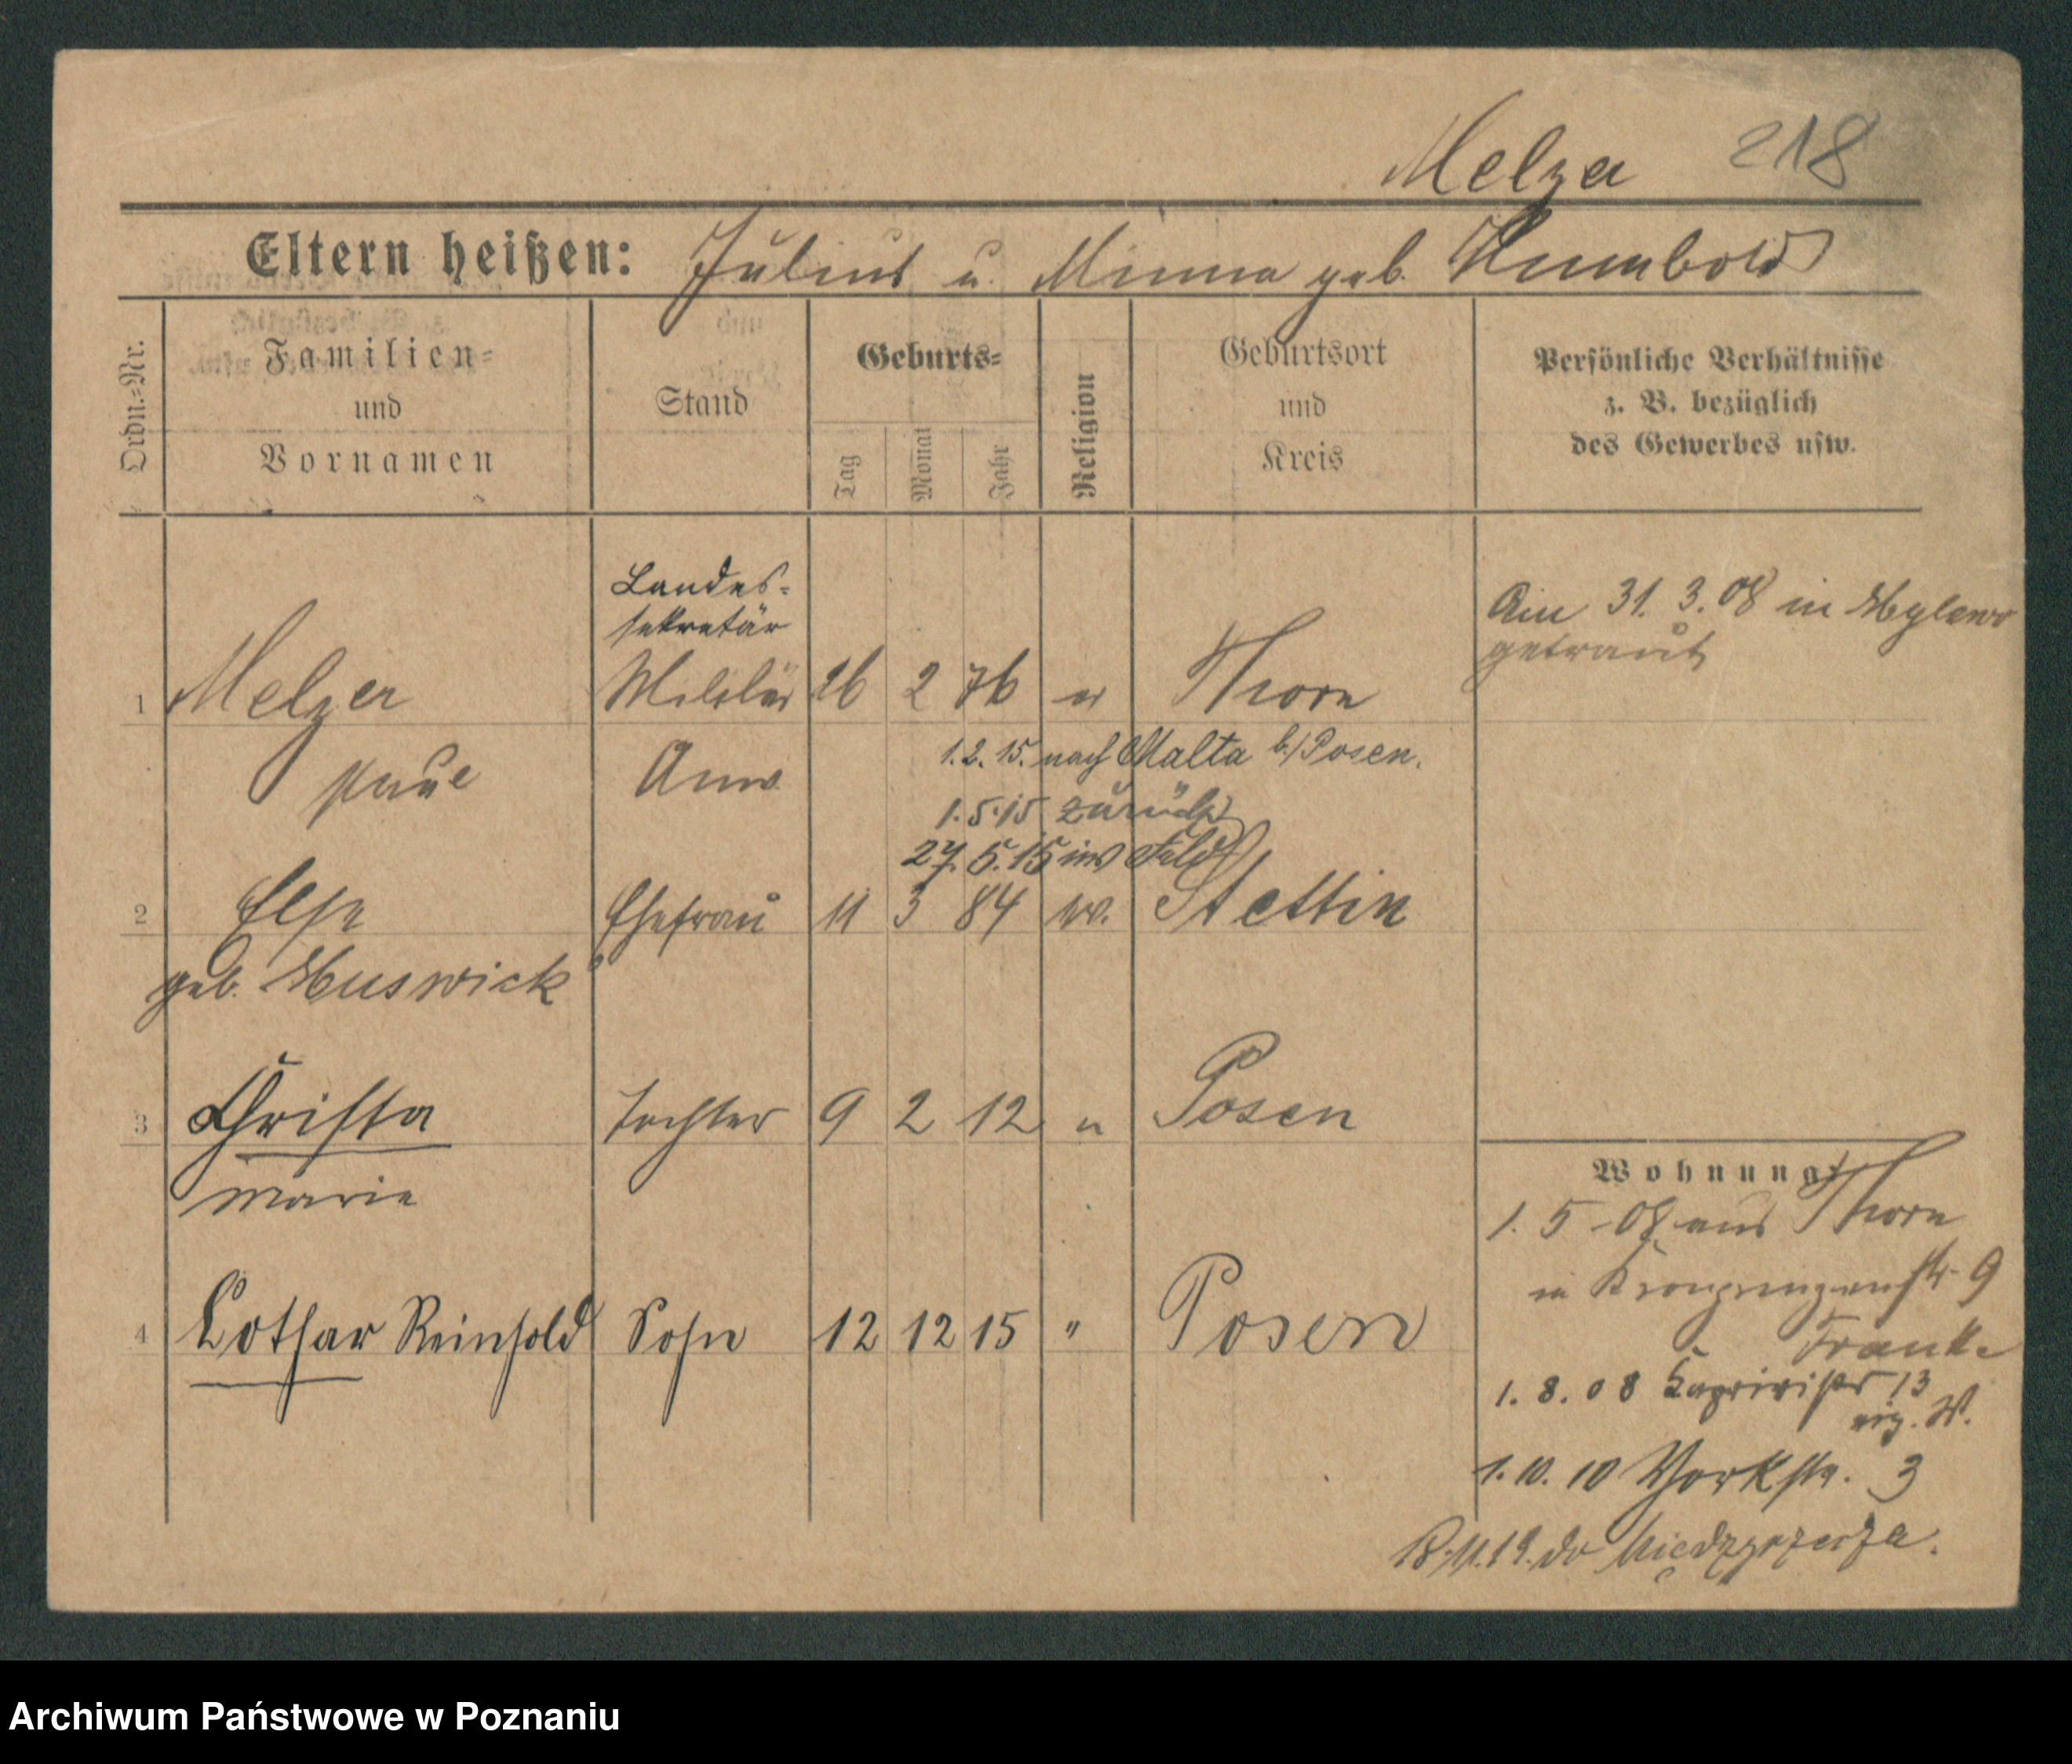 Melzer 218
Eltern heißen: Julius u. Minna geb. Humbold
Ordn.=Nr.
Familien=
und
Vornamen
Stand
Geburts=
Tag
Monat
Jahr
Religion
Geburtsort
und
Kreis
Persönliche Verhältnisse
z. B. bezüglich
des Gewerbes usw.
Landes-
sekretär
1 Melzer Militär 26 2 76 ev Thorn
Am 31. 3. 08 in
getraut
Paul Anw
1.2.15. nach Malta b/Posen.
1.5.15 zurück
27.5.15 ins Feld
2 Else Ehefrau 11 3 84 Stettin
geb. Huswick
3 Christa Tochter 9 2 12 " Posen
Marie
4 Lothar Reinhold Sohn 12 12 15 " Posen
Wohnung
1. 5 - 08 aus Thorn
in Kronprinzenstr 9
Franke
1. 8. 08 Caprivistr 13
eig. W.
1. 10. 10 Yorkstr. 3
18.11.19. do Międzyrzecza.
Archiwum Państwowe w Poznaniu